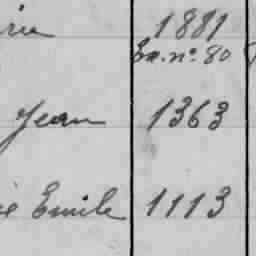 1881
Ex. nº 80
Jean 1363
Emile 1113